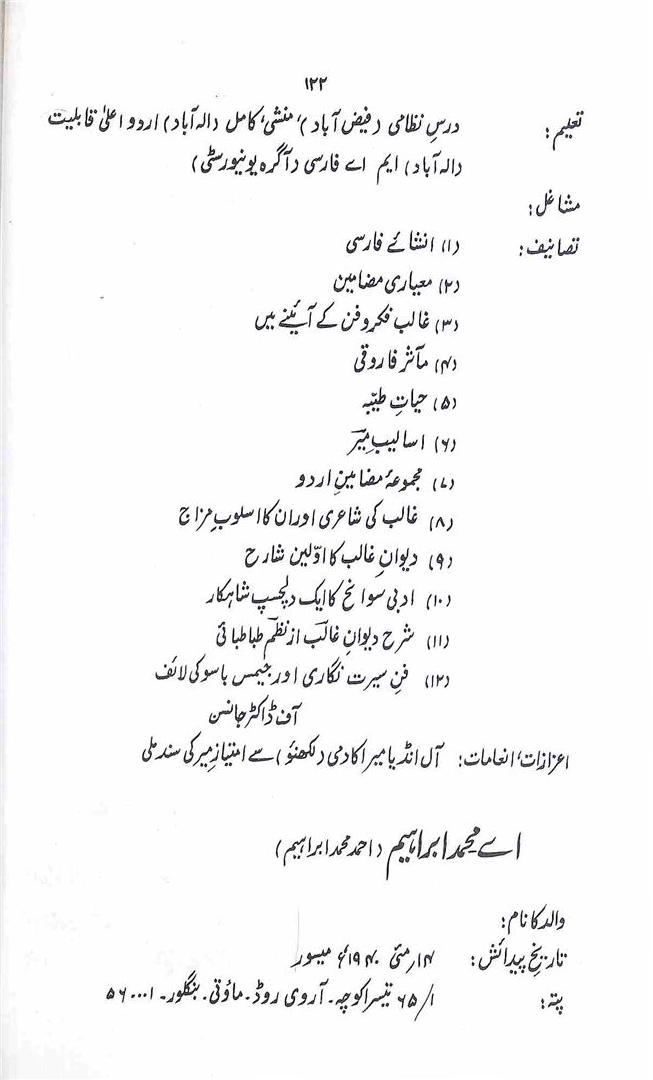 ۱۲۲
تعلیم: درسِ نظامی (فیض آباد)، منشی، کامل (الہ آباد) اردو اعلیٰ قابلیت
(الہ آباد) ایم اے فارسی (آگرہ یونیورسٹی)
مشاغل:
تصانیف: (۱) انشائے فارسی
(۲) معیاری مضامین
(۳) غالب فکر و فن کے آئینے میں
(۴) مآثر فاروقی
(۵) حیاتِ طیّبہ
(۶) اسالیبِ میرؔ
(۷) مجموعۂ مضامینِ اردو
(۸) غالب کی شاعری اور ان کا اسلوبِ مزاج
(۹) دیوانِ غالب کا اوّلین شارح
(۱۰) ادبی سوانح کا ایک دلچسپ شاہکار
(۱۱) شرح دیوانِ غالبؔ از نظمؔ طباطبائی
(۱۲) فنِ سیرت نگاری اور جیمس باسو کی لائف
آف ڈاکٹر جانسن
اعزازات، انعامات: آل انڈیا میر اکادمی (لکھنؤ) سے امتیازِ میر کی سند ملی
اے محمد ابراہیم (احمد محمد ابراہیم)
والد کا نام:
تاریخِ پیدائش: ۱۴؍مئی ۱۹۴۰ء میسور
پتہ: ۶۵/۱ تیسرا کوچہ۔ آر وی روڈ۔ ماؤتی۔ بنگلور۔ ۵۶۰۰۰۱